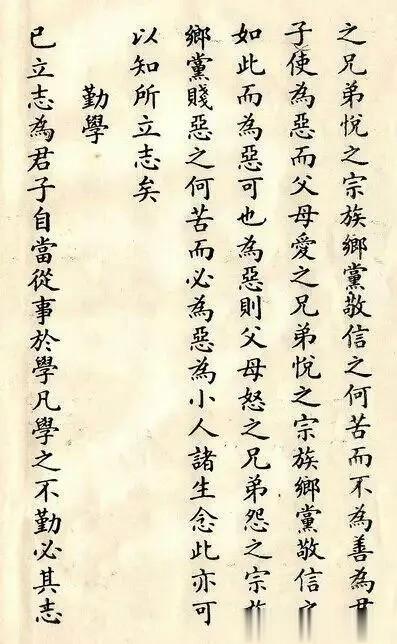 之兄弟悅之宗族鄉黨敬信之何苦而不為善為君
子使為惡而父母愛之兄弟悅之宗族鄉黨敬信之
如此而為惡可也為惡則父母怒之兄弟怨之宗族
鄉黨賤惡之何苦而必為惡為小人諸生念此亦可
以知所立志矣
勤學
已立志為君子自當從事於學凡學之不勤必其志